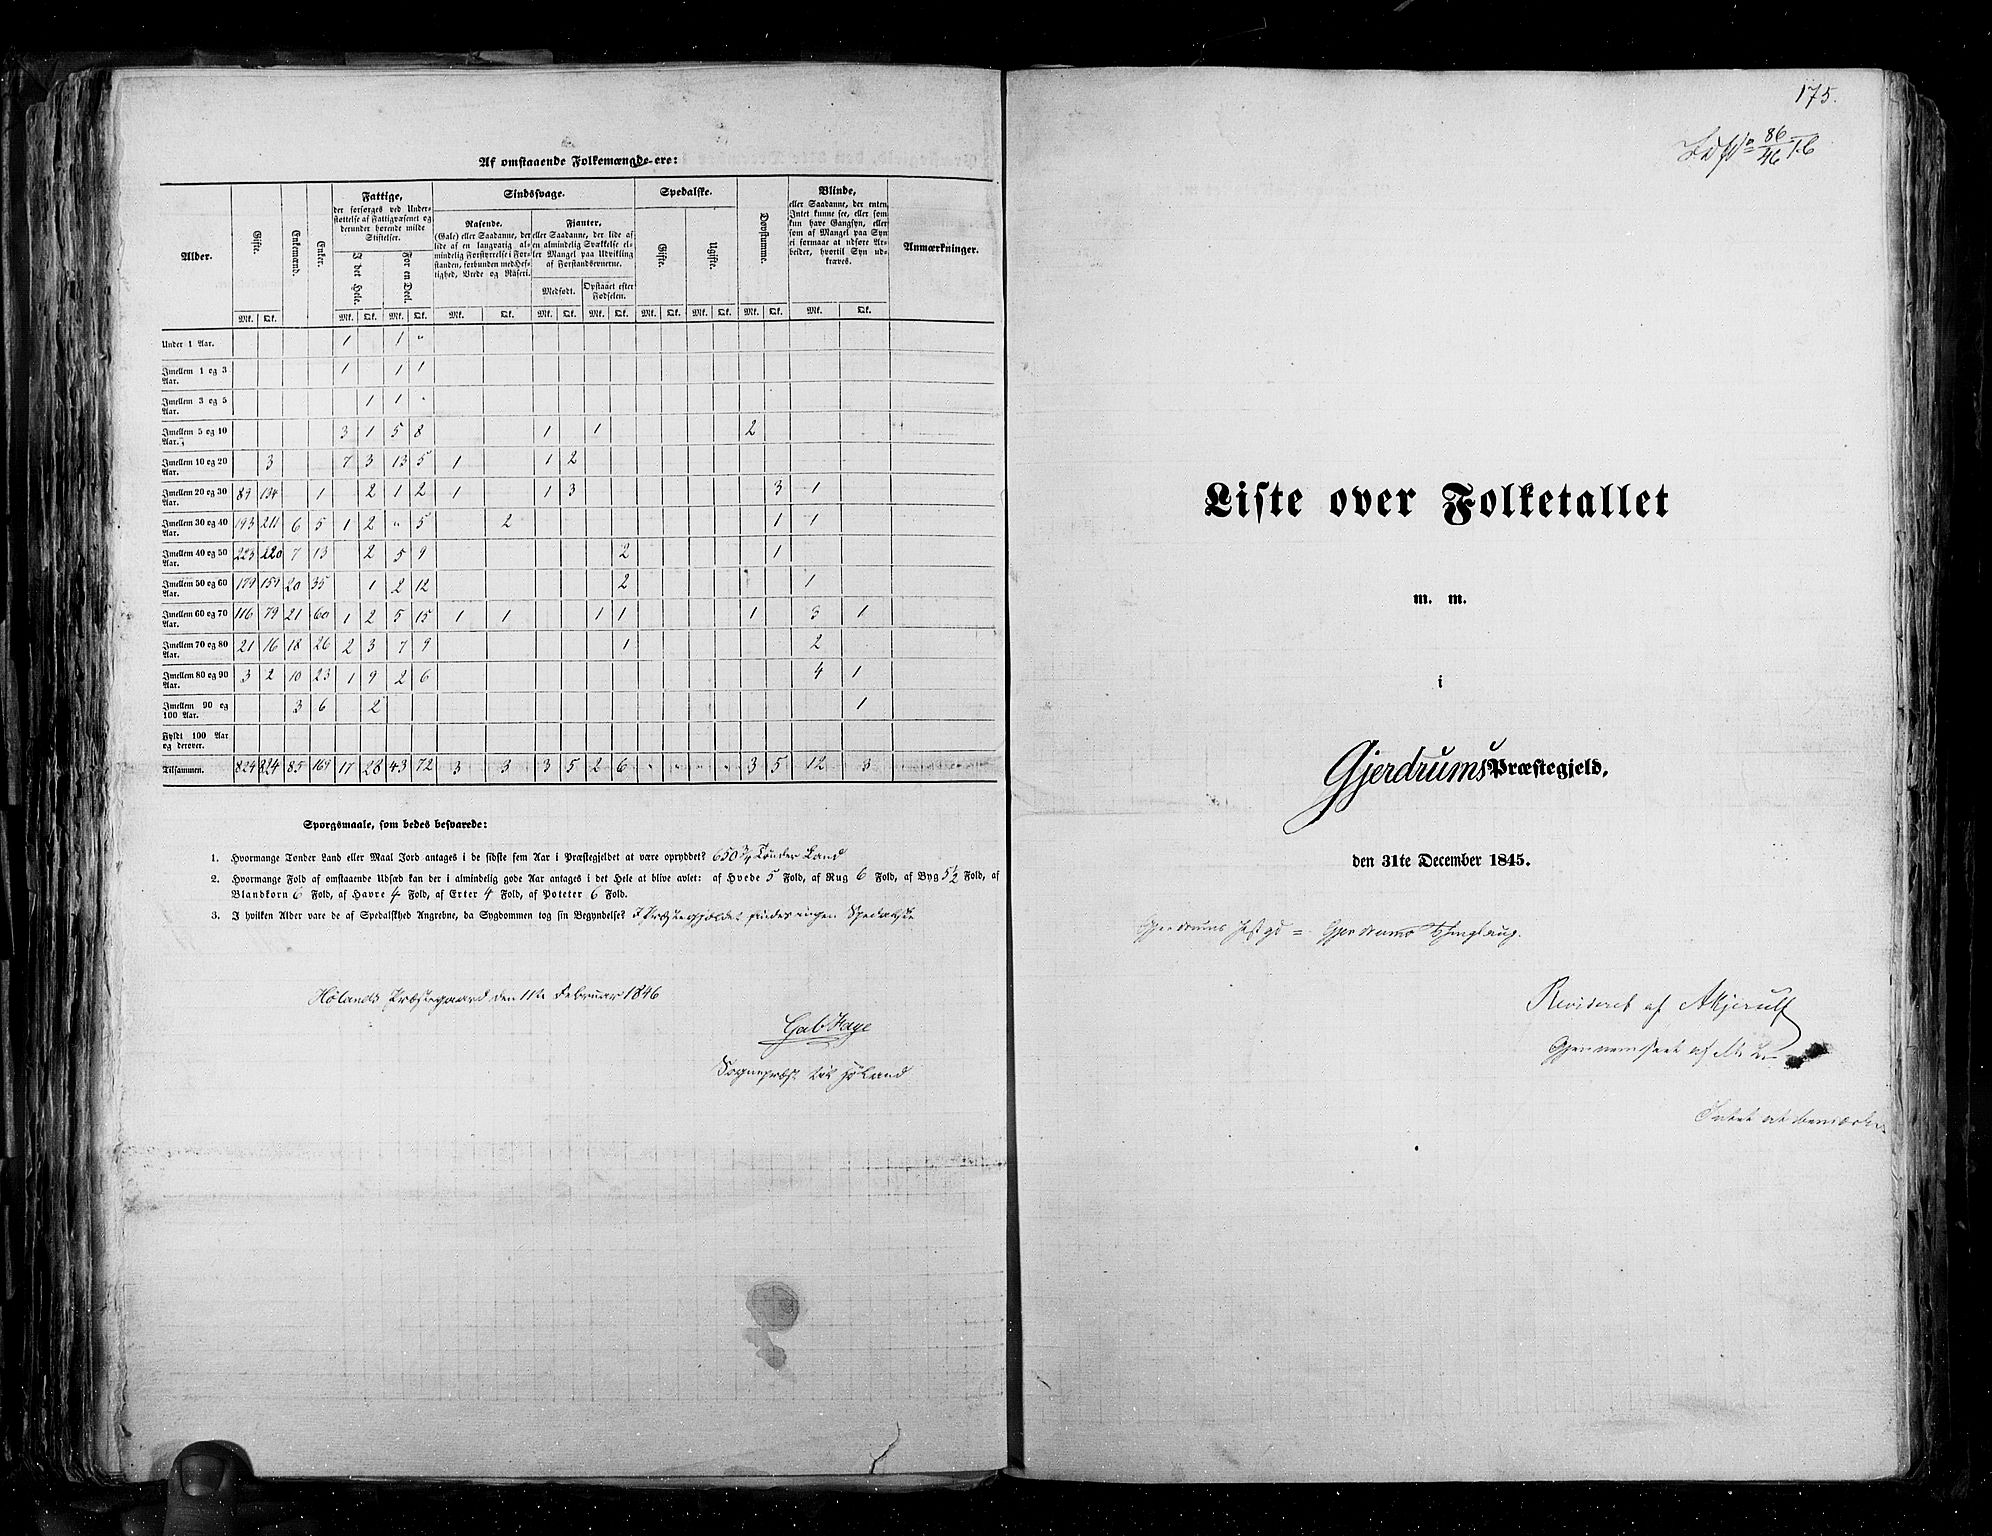 Af omstaaende Folkemængde ere:
Alder.
Gifte.
Enkemænd.
Enker.
Fattige,
der forsørges ved Under-
støttelse af Fattigvæsenet og
derunder hørende milde
Stiftelser.
I det Hele.
For en Deel.
Sindssvage.
Rasende.
(Gale) eller Saadanne, der
lide af en langvarig al-
mindelig Forstyrrelse i For-
standen, forbunden med Hef-
tighed, Vrede og Raseri.
Fjanter,
eller Saadanne, der lide af
en almindelig Svækkelse el-
ler Mangel paa Udvikling
af Forstandsevnerne.
Medfødt.
Opstaaet efter
Fødselen.
Spedalske.
Gifte.
Ugifte.
Døvstumme.
Blinde,
eller Saadanne, der enten
Intet kunne see, eller som
kun have Gangsyn, eller
som af Mangel paa Syn
ei formaae at udføre Ar-
beider, hvortil Syn ud-
kræves.
Anmærkninger.
Mk. Qk. Mk. Qk. Mk. Qk. Mk. Qk. Mk. Qk. Mk. Qk. Mk. Qk. Mk. Qk. Mk. Qk. Mk. Qk.
Under 1 Aar. 1 1 "
Imellem 1 og 3 Aar. 1 1 1
Imellem 3 og 5 Aar. 1 1 "
Imellem 5 og 10 Aar. 3 1 5 8 1 1 2
Imellem 10 og 20 Aar. 3 7 3 13 5 1 1 2
Imellem 20 og 30 Aar. 89 134 1 2 1 2 1 1 3 3 1
Imellem 30 og 40 Aar. 193 211 6 5 1 2 " 5 2 1 1
Imellem 40 og 50 Aar. 223 220 7 13 2 5 9 2 1
Imellem 50 og 60 Aar. 179 159 20 35 1 2 12 2 1
Imellem 60 og 70 Aar. 116 79 21 60 1 2 5 15 1 1 1 1 1 3 1
Imellem 70 og 80 Aar. 21 16 18 26 2 3 7 9 1 2
Imellem 80 og 90 Aar. 3 2 10 23 1 9 2 6 4 1
Imellem 90 og 100 Aar. 3 6 2 1
Fyldt 100 Aar og derover.
Tilsammen. 824 824 85 169 17 28 43 72 3 3 3 5 2 6 " " " " 3 5 12 3
Spørgsmaale, som bedes besvarede:
1. Hvormange Tønder Land eller Maal Jord antages i de sidste fem Aar i Præstegjeldet at være opryddet? 650 3/4 Tønder Land
2. Hvormange Fold af omstaaende Udsæd kan der i almindelig gode Aar antages i det Hele at blive avlet: af Hvede 5 Fold, af Rug 6 Fold, af Byg 5½ Fold, af
Blandkorn 6 Fold, af Havre 4 Fold, af Erter 4 Fold, af Poteter 6 Fold.
3. I hvilken Alder vare de af Spedalskhed Angrebne, da Sygdommen tog sin Begyndelse? I Præstegjeldet findes ingen Spedalske
Hølands Præstegaard den 11te Februar 1846
Gab Faye
Sognepræst til Høland
175.
86
46
Liste over Folketallet
m. m.
i
Gjerdrums Præstegjeld,
den 31te December 1845.
Gjerdrums Pstgd = Gjerdrums Thinglaug.
Revideret af AKjerulf
Gjennemseet af
Intet at bemærke